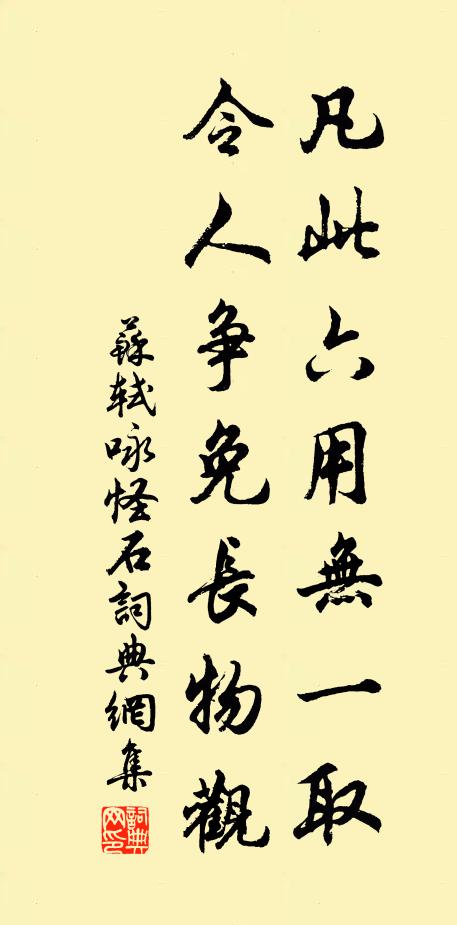 凡此六用無一取
令人争免長物觀
蘇軾咏怪石詞典網集
詞典网印